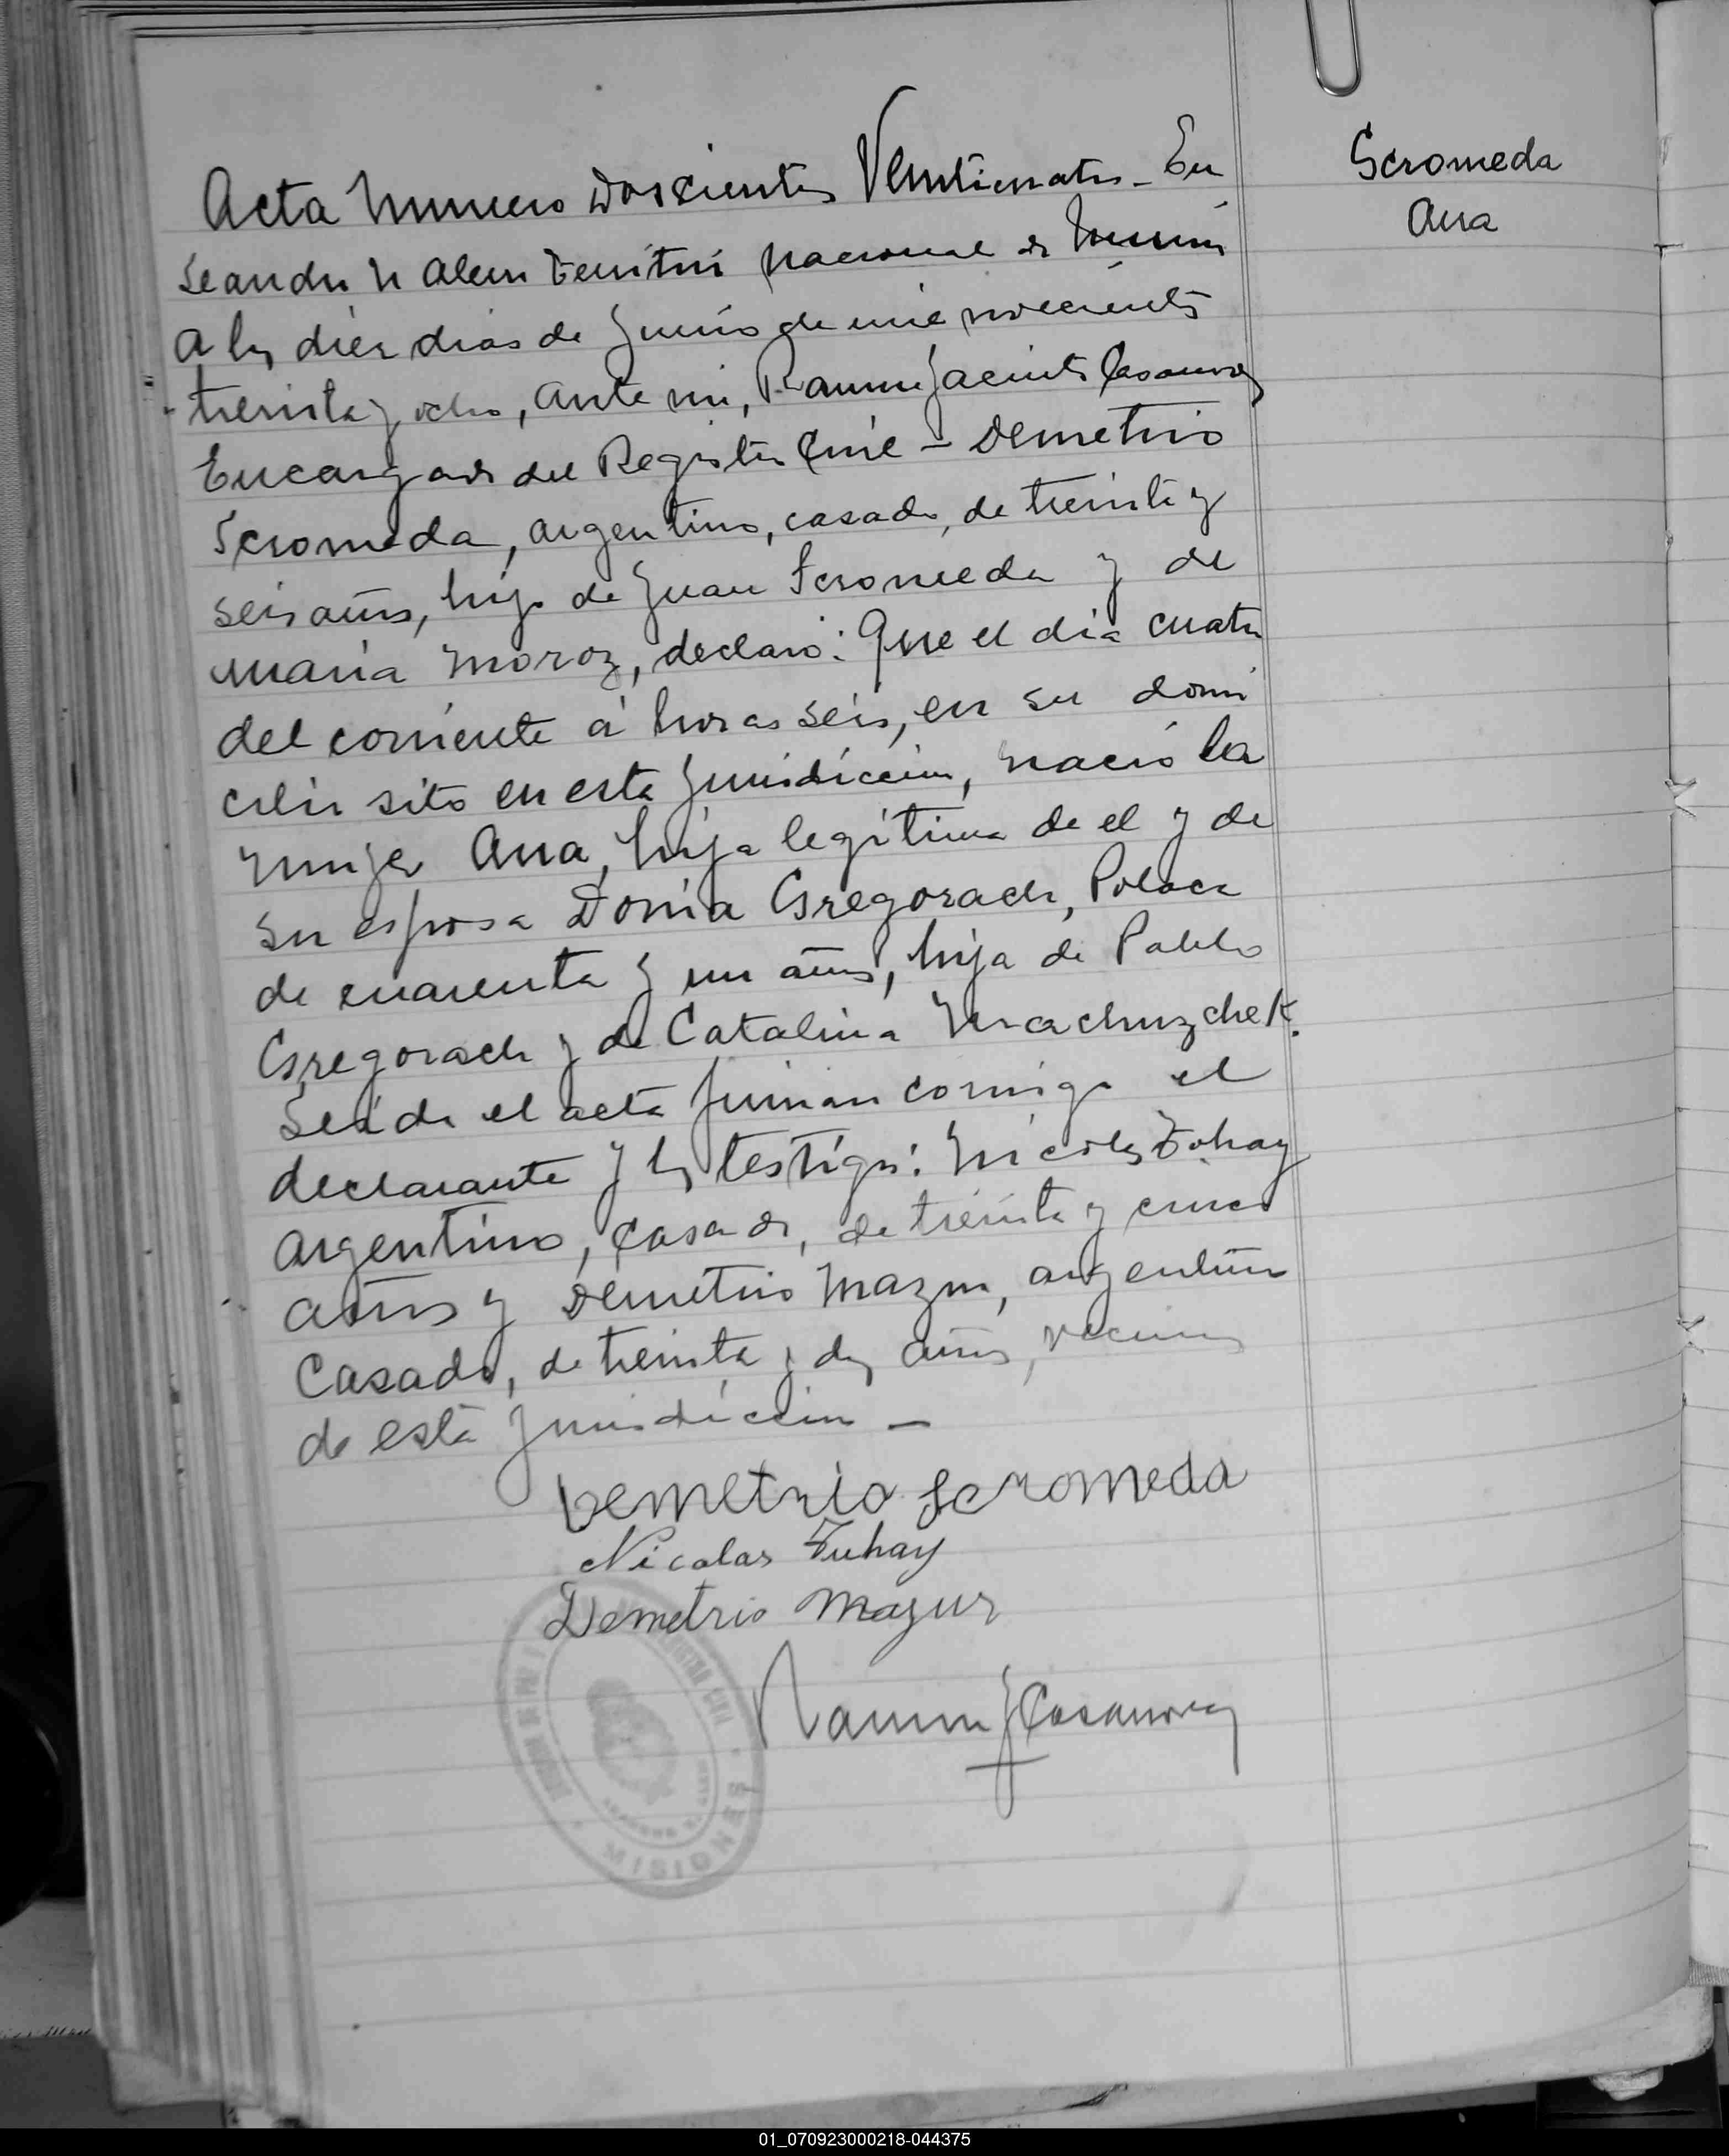 Acta Numero Doscientos Veinticuatro - En
Leandro N Alem Territorio Nacional de Misiones
a los diez dias de Junio de mil novecientos
treinta y ocho, ante mi, Ramon Jacinto Casanova
Encargado del Registro Civil - Demetrio
Scromeda, argentino, casado, de treinta y
seis años, hijo de Juan Scromeda y de
Maria Moroz, declaró: Que el dia cuatro
del corriente á horas seis, en su domi
cilio sito en esta Jurisdiccion, nació la
mujer Ana, hija legítima de el y de
su esposa Donia Gregorach, Polaca
de cuarenta y un años, hija de Pablo
Gregorach y de Catalina Machuzchek.
Leída el acta firman conmigo el
declarante y los testigos: Nicolas Tohay
Argentino, Casado, de treinta y cinco
años y Demetrio Mazur, argentino
Casado, de treinta y dos años, vecinos
de esta Jurisdiccion -
Demetrio Scromeda
Nicolas Tuhay
Demetrio Mazur
Ramon J Casanova
Scromeda
Ana
REGISTRO CIVIL
MISIONES
01_070923000218-044375